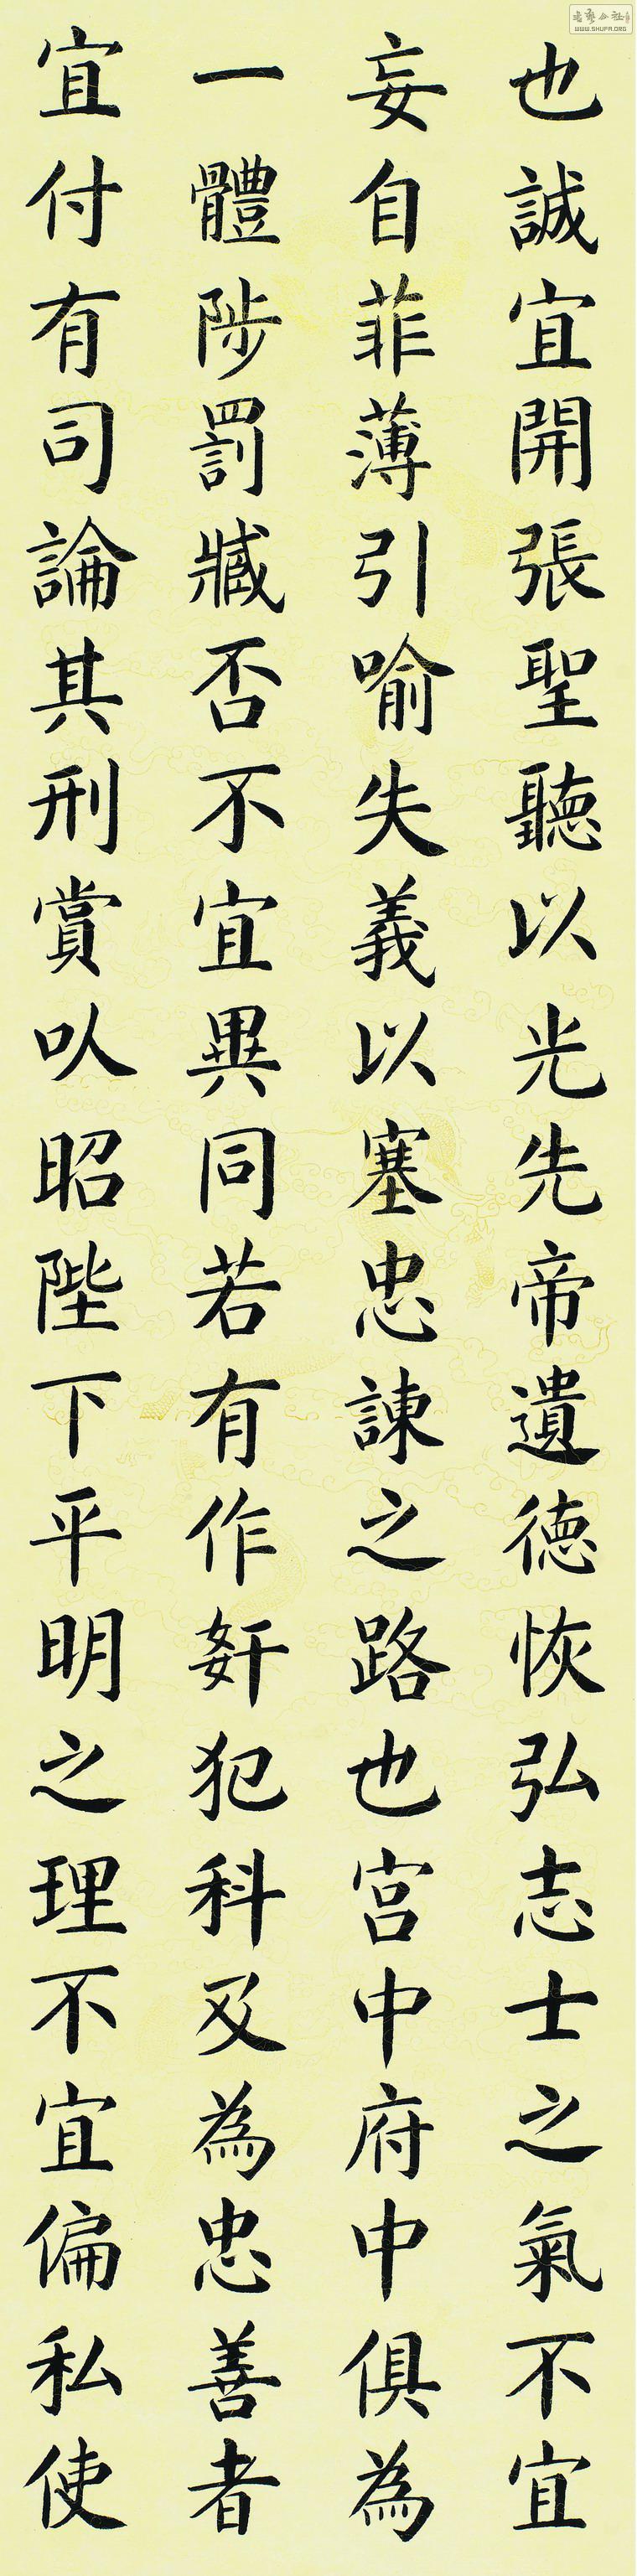 也誠宜開張聖聽以光先帝遺德恢弘志士之氣不宜
妄自菲薄引喻失義以塞忠諫之路也宮中府中俱為
一體陟罰臧否不宜異同若有作奸犯科及為忠善者
宜付有司論其刑賞以昭陛下平明之理不宜偏私使
WWW.SHUFA.ORG